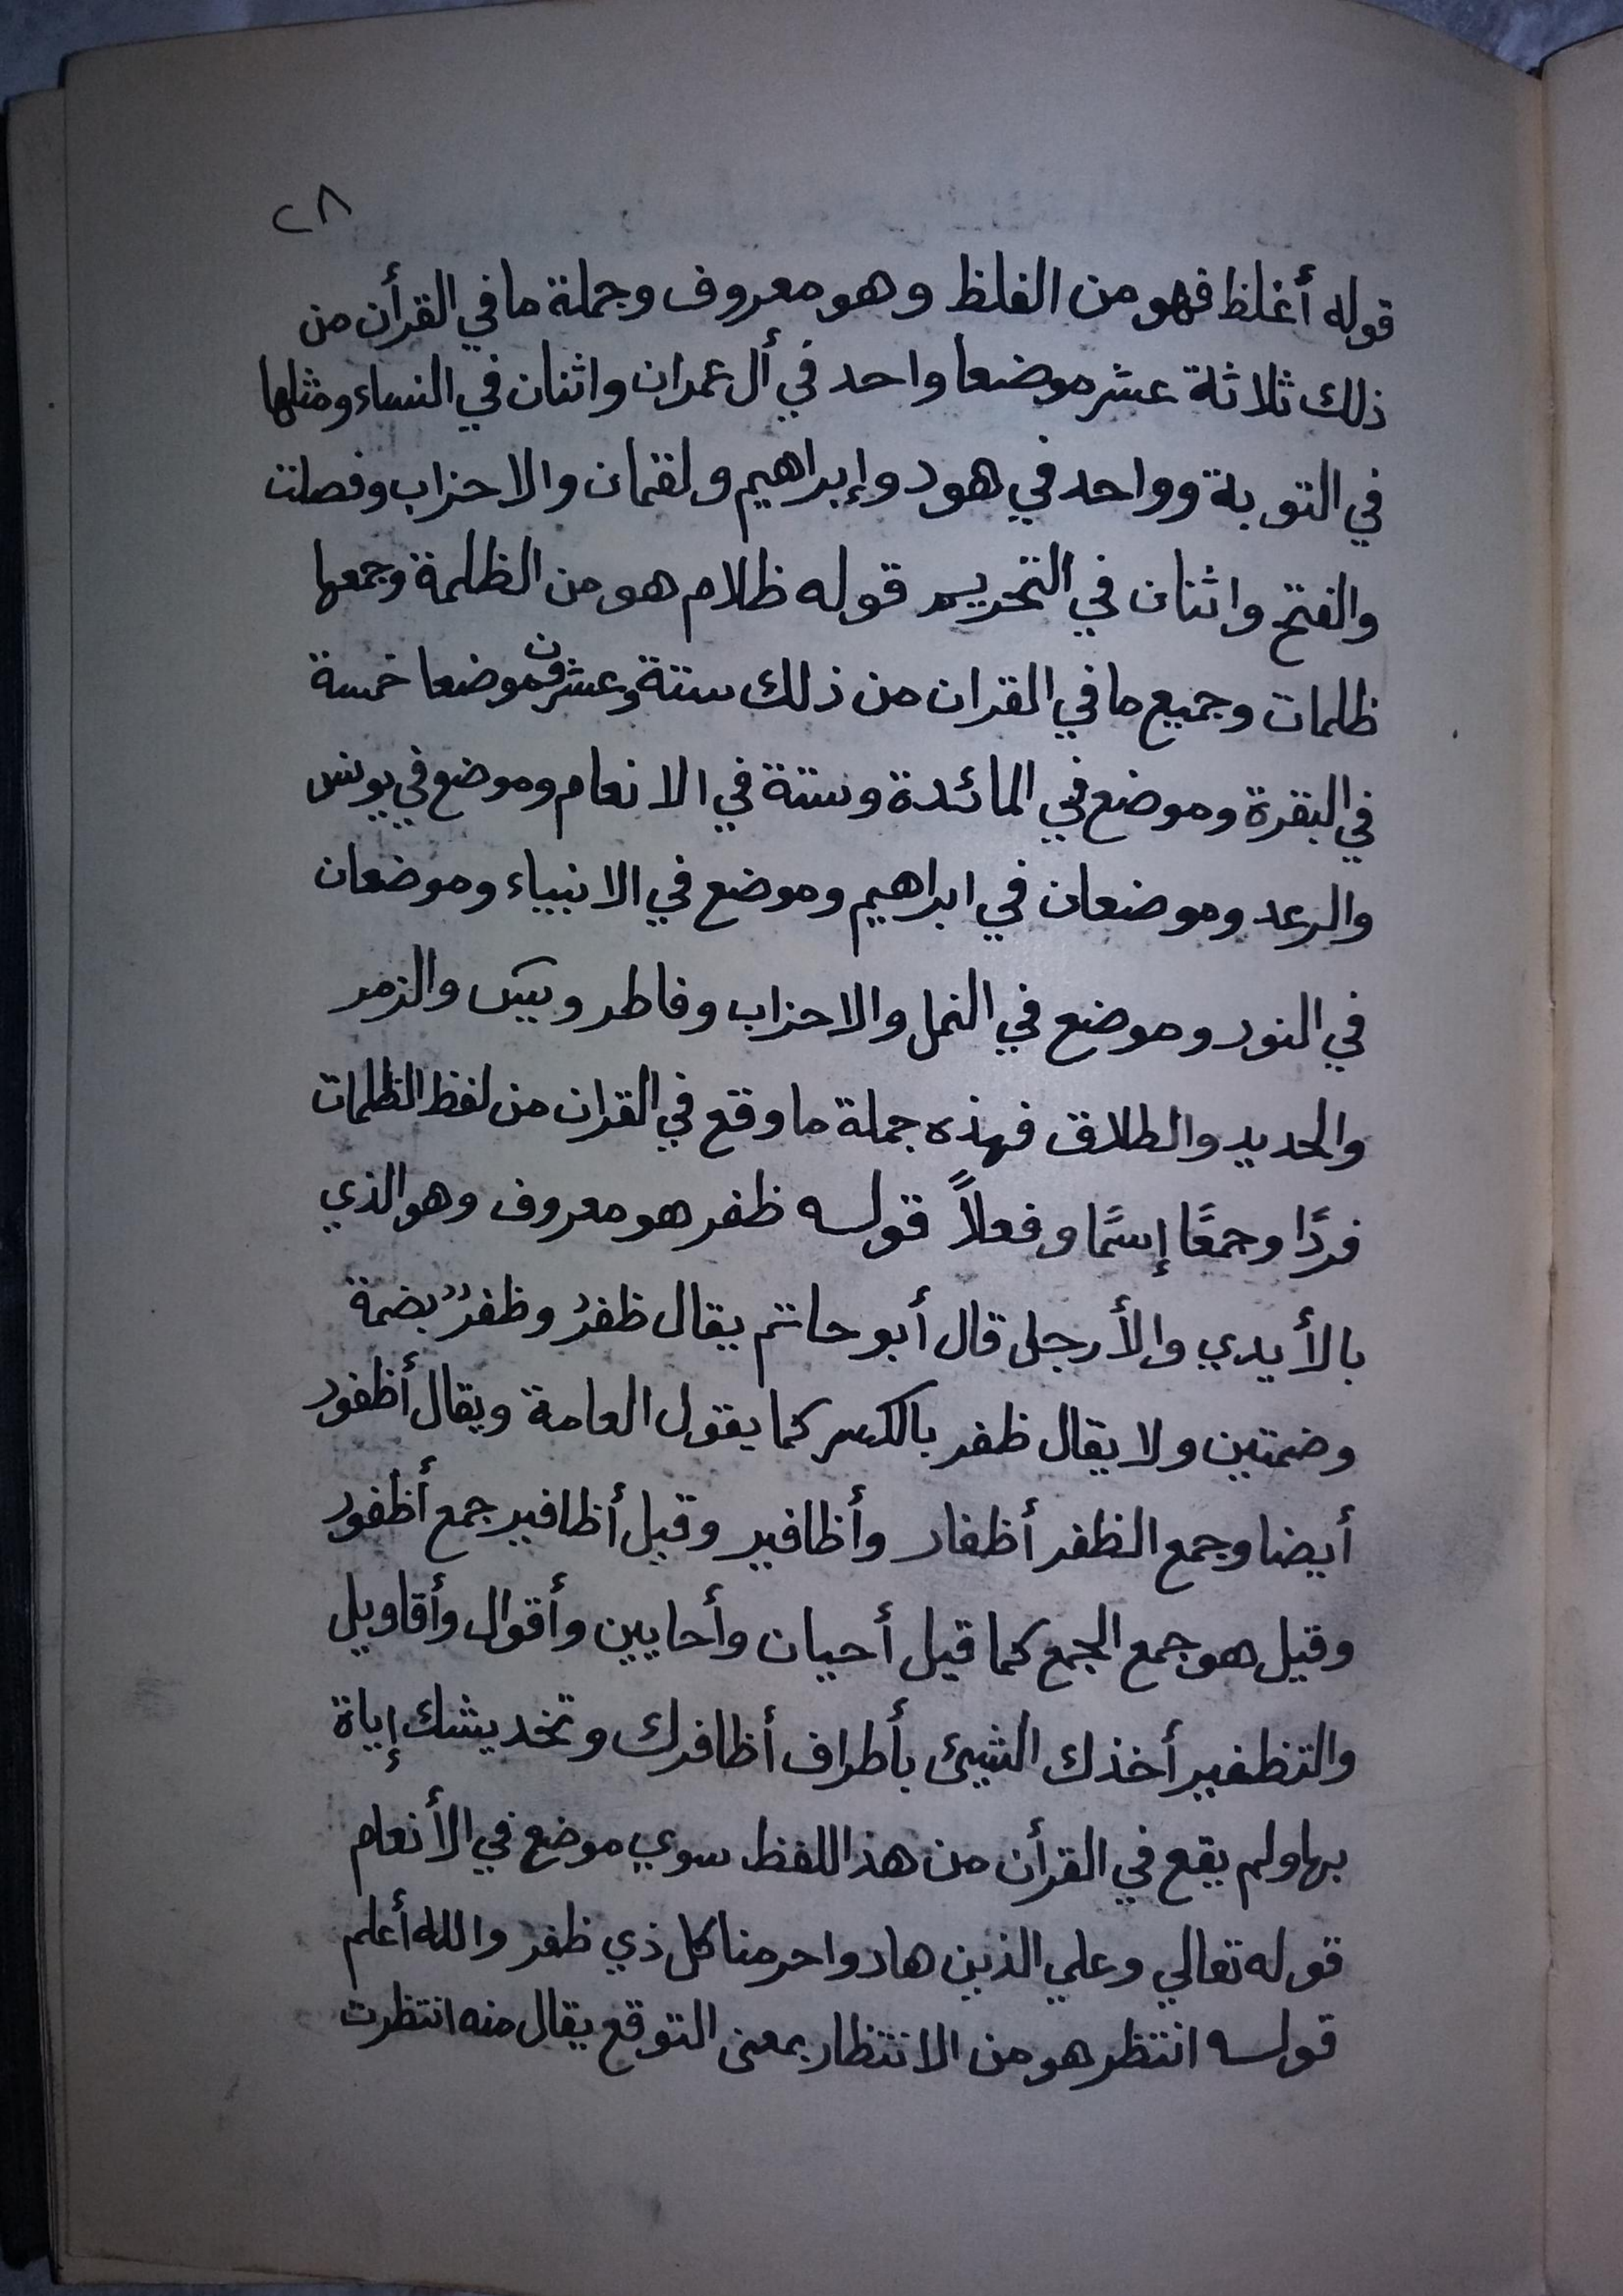 ٢٨
قوله أغلظ فهو من الغلظ وهو معروف وجملة ما في القرأن من
ذلك ثلاثة عشر موضعا واحد في أل عمران واثنان في النساء ومثلها
في التوبة وواحد في هود وإبراهيم ولقمان والاحزاب وفصلت
والفتح واثنان في التحريم قوله ظلام هو من الظلمة وجمعها
ظلمات وجميع ما في القران من ذلك ستة وعشرون موضعا خمسة
في البقرة وموضع في المائدة وستة في الانعام وموضع في يونس
والرعد وموضعان في ابراهيم وموضع في الانبياء وموضعان
في النور وموضع في النمل والاحزاب وفاطر ويس والزمر
والحديد والطلاق فهذه جملة ما وقع في القران من لفظ الظلمات
فردًا وجمعًا إسمًا وفعلاً قوله ظفر هو معروف وهو الذي
بالأيدي والأرجل قال أبو حاتم يقال ظفرُ وظفرُ بضمة
وضمتين ولا يقال ظفر بالكسر كما يقول العامة ويقال أظفور
أيضا وجمع الظفر أظفار وأظافير وقيل أظافير جمع أظفور
وقيل هو جمع الجمع كما قيل أحيان وأحايين وأقوال وأقاويل
والتظفير أخذك الشيئ بأطراف أظافرك وتخديشك إياة
بها ولم يقع في القرأن من هذا اللفظ سوي موضع في الأنعام
قوله تعالي وعلي الذين هادوا حرمنا كل ذي ظفر والله أعلم
قوله انتظر هو من الانتظار بمعنى التوقع يقال منه انتظرت